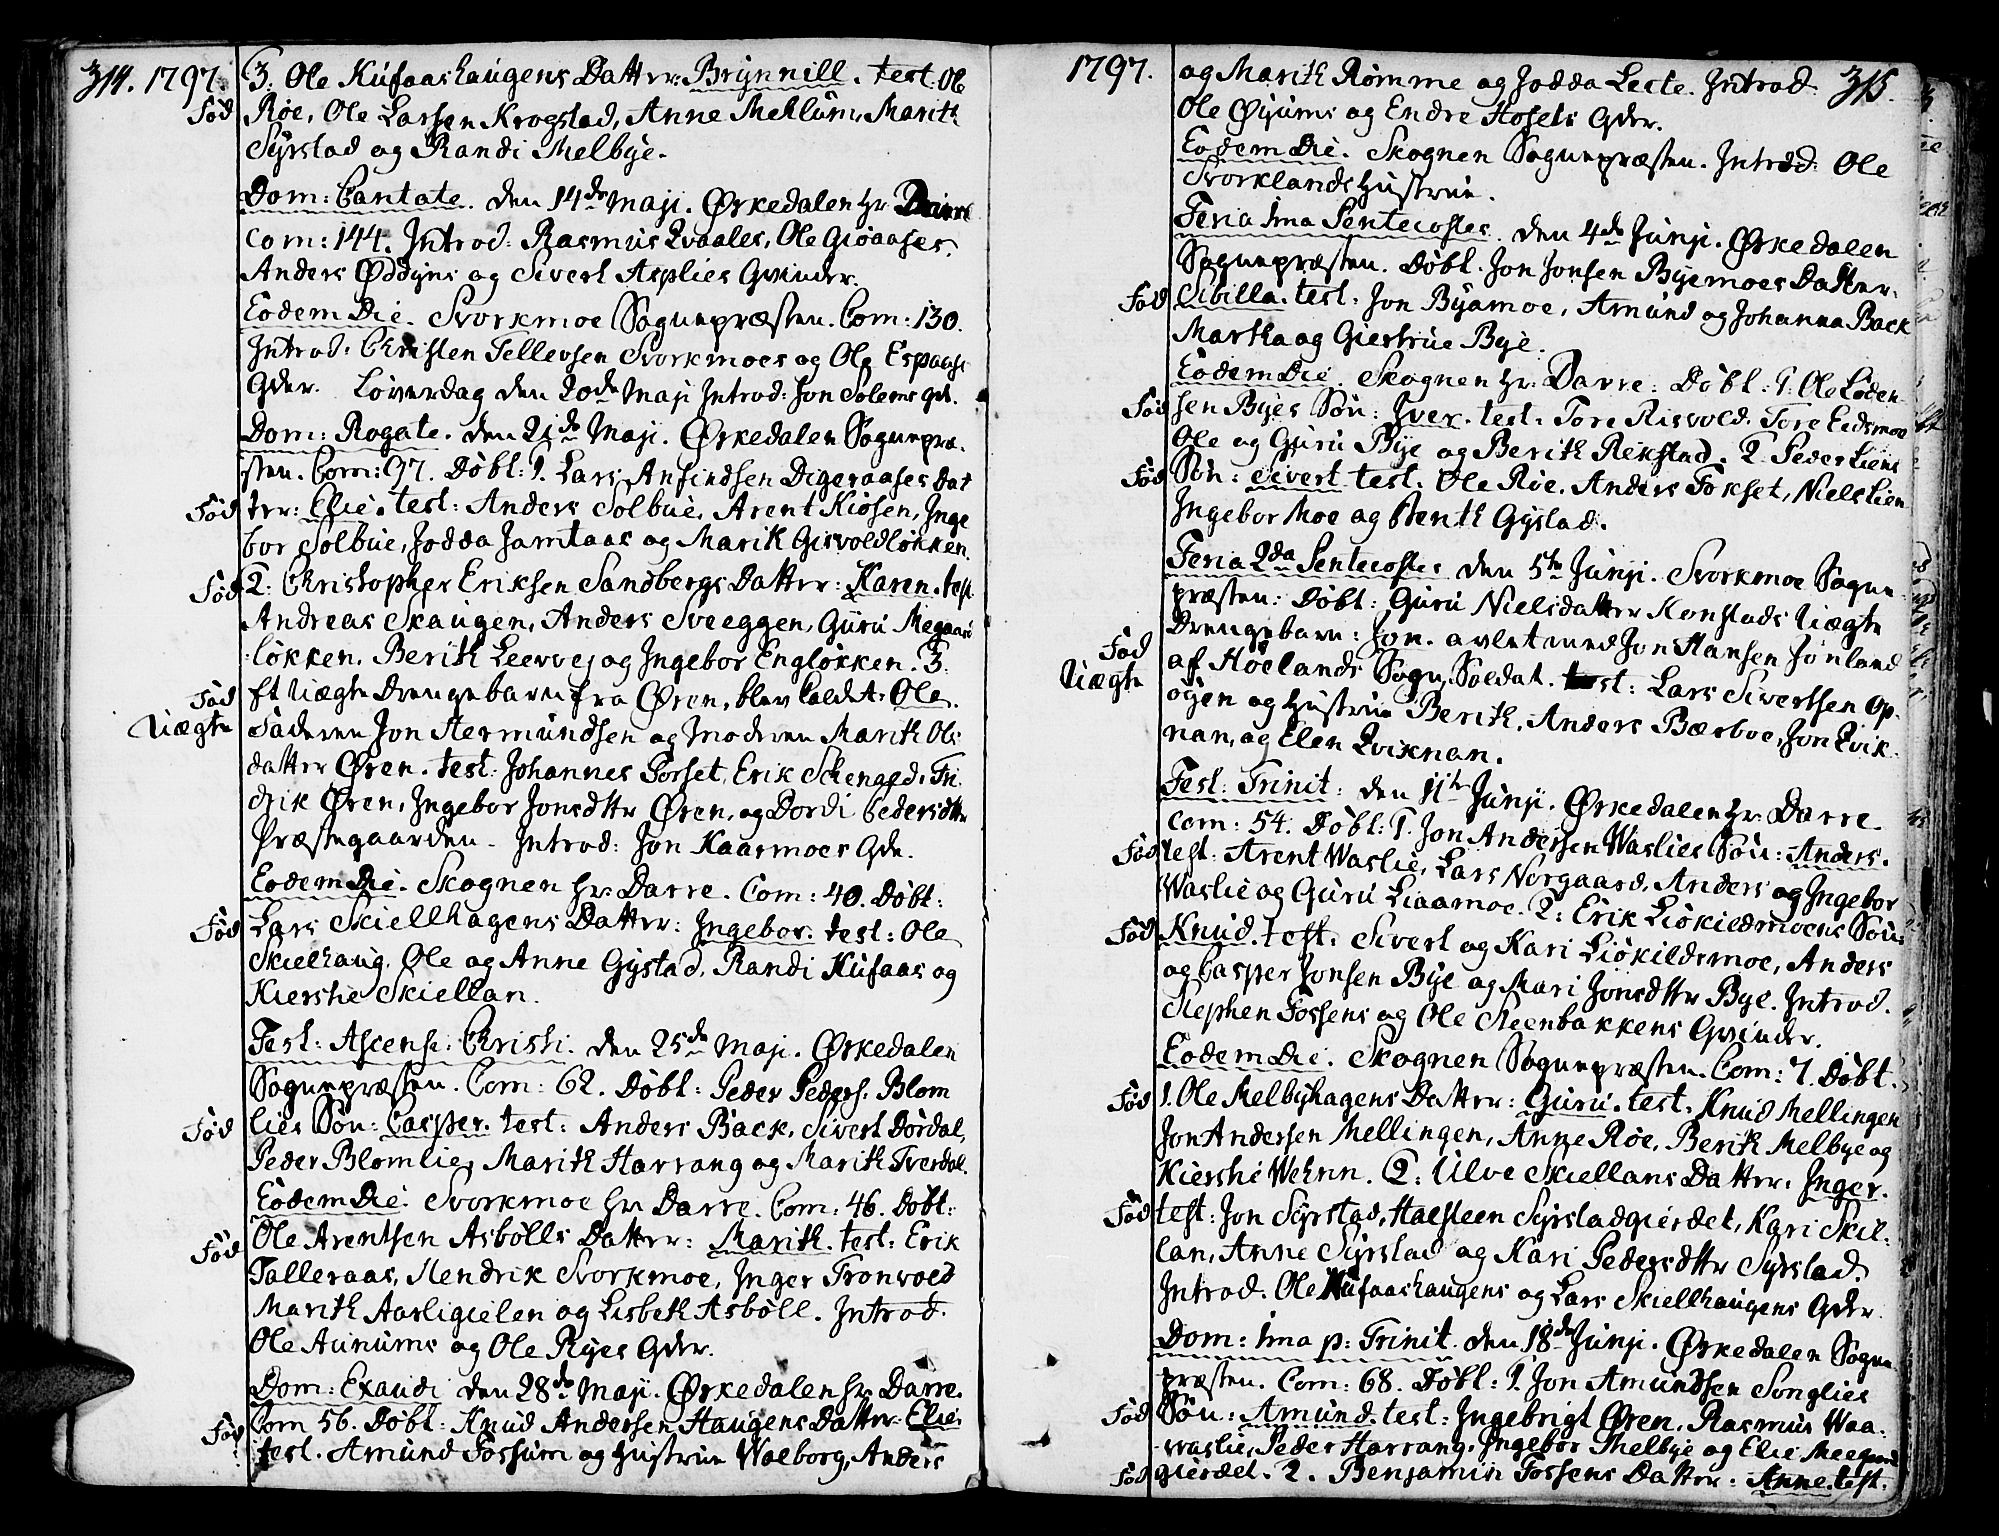 314. 1797.
3. Ole Kufaashaugens Datter: Brynnill. test. Ole
Fød Røe, Ole Larsen Krogstad, Anne Meklum, Marith
Syrstad og Randi Melbye.
Dom: Cantate. den 14de Maji. Ørkedalen Hr. Darre
Com: 144. Introd: Rasmus Qvaales, Ole Gioaases,
Anders Oddyns og Sivert Asplies Qvinder.
Eodem Die. Svorkmoe Sognepræsten. Com: 130.
Introd: Christen Tellevsen Svorkmoes og Ole Espaases
Qder. Løverdag den 20de Maji Introd: Jon Solems Qde.
Dom: Rogate. den 21de Maji. Ørkedalen Sognepræ-
sten. Com: 97. Døbt: 1. Lars Anfindsen Digeraases Dat
Fød ter: Elie. test: Anders Solbue, Arent Kiøsen, Inge
bor Solbue, Jodda Jamtaas og Marith Gisvoldløkken.
Fød 2. Christopher Eriksen Sandbergs Datter: Karen. test.
Andreas Skaugen, Anders Sveeggen, Guru Megaard
løkken. Berith Leevvej og Ingebor Engløkken. 3.
Fød Et Uægte Drengebarn fra Øren, blev kaldet: Ole.
Uægte Faderen Jon Hermundsen og Moderen Marith Ols
datter Øren. test: Johannes Forset, Erik Schenged, Fri
drik Øren, Ingebor Jonsdttr Øren, og Dordi Pedersdttr
Præstegaarden. Introd: Jon Kaarmoes Qde.
Eodem Die. Skognen Hr. Darre. Com: 40. Døbt:
Fød Lars Skiellhagens Datter: Ingebor. test: Ole
Skielhaug, Ole og Anne Gystad, Randi Kufaas og
Kiershe Skiellan.
Fest: Ascens: Christi. den 25de Maji. Ørkedalen
Sognepræsten. Com: 62. Døbt: Peder Peders: Blom
Fød lies Søn: Casper. test: Anders Back, Sivert Dørdal,
Peder Blomlie, Marith Harrang og Marith Tverdal.
Eodem Die. Svorkmoe Hr. Darre. Com: 46. Døbt:
Fød Ole Arentsen Asbølls Datter: Marith. test: Erik
Talleraas, Hendrik Svorkmoe, Inger Tronvold
Marith Aasligielen og Lisbeth Asbøll. Introd.
Ole Aunums og Ole Ryes Qder.
Dom: Exaudi den 28de Maji. Ørkedalen Hr. Darre.
Fød Com 56. Døbt: Knud Andersen Haugens Datter: Elie.
test. Amund Fossum og Hustrue Walborg, Anders
1797. 315.
og Marith Rømme og Jodda Leele. Introd:
Ole Øyums og Endre Hosets Qder.
Eodem Die. Skognen Sognepræsten. Introd: Ole
Svorklands Hustrue.
Feria 1ma Pentecostes. den 4de Junji. Ørkedalen
Sognepræsten. Døbt. Jon Jonsen Byemoes Datter.
Fød Sibilla. test: Jon Byamoe, Amund og Johanna Back
Martha og Giertrue Bye.
Eodem Die. Skognen Hr: Darre: Døbt: 1. Ole Loden-
Fød sen Byes Søn: Iver. test: Tore Risvold, Tore Eidsmoe
Ole og Guru Bye og Berith Rekstad. 2. Peder Liens
Fød Søn: Sivert test: Ole Røe, Anders Fokset, Niels Lien
Ingebor Moe og Berith Gystad.
Feria 2da Pentecostes den 5te Junji. Svorkmoe Sogne
præsten: Døbt: Guru Nielsdatter Konstads Uægte
Fød Drengebarn: Jon. avlet med Jon Hansen Jønland
Uægte af Hølands Sogn, Soldat. test: Lars Sivertsen Op-
øyen og Hustrue Berith, Anders Bærboe, Jon Qvik-
nan, og Elen Qviknan.
Fest: Trinit: den 11te Junji. Ørkedalen Hr. Darre
Com: 54. Døbt: 1. Jon Andersen Waslies Søn: Anders.
Fød test: Arent Waslie, Lars Norgaard, Anders og Ingebor
Waslie og Guru Liaamoe. 2: Erik Liøkildmoens Søn:
Fød Knud. test: Sivert og Kari Liøkildsmoe, Anders
og Casper Jonsen Bye og Mari Jonsdttr Bye. Introd.
Stephen Fossens og Ole Steenbakkens Qvinder.
Eodem Die. Skognen Sognepræsten. Com: 7. Døbt.
Fød 1. Ole Melbyhagens Datter: Guru. test. Knud Mellingen
Jon Andersen Mellingen, Anne Røe, Berith Melbye og
Kiershe Wehnn. 2: Ulve Skiellans Datter: Inger.
Fød test: Jon Syrstad, Halsteen Syrstadgierdet, Kari Skil-
lan, Anne Syrstad og Kari Pedersdttr Syrstad.
Introd. Ole Kufaashaugens og Lars Skiellhaugens Qder.
Dom: 1ma p: Trinit. den 18de Junji. Ørkedalen Sogne
præsten. Com: 68. Døbt: 1. Jon Amundsen Songlies
Fød Søn: Amund. test: Ingebrigt Øren, Rasmus Waa-
waslie, Peder Harrang, Ingebor Melbye og Elie Meegaard
Fød gierdet. 2. Benjamin Fossens Datter: Anne. test: